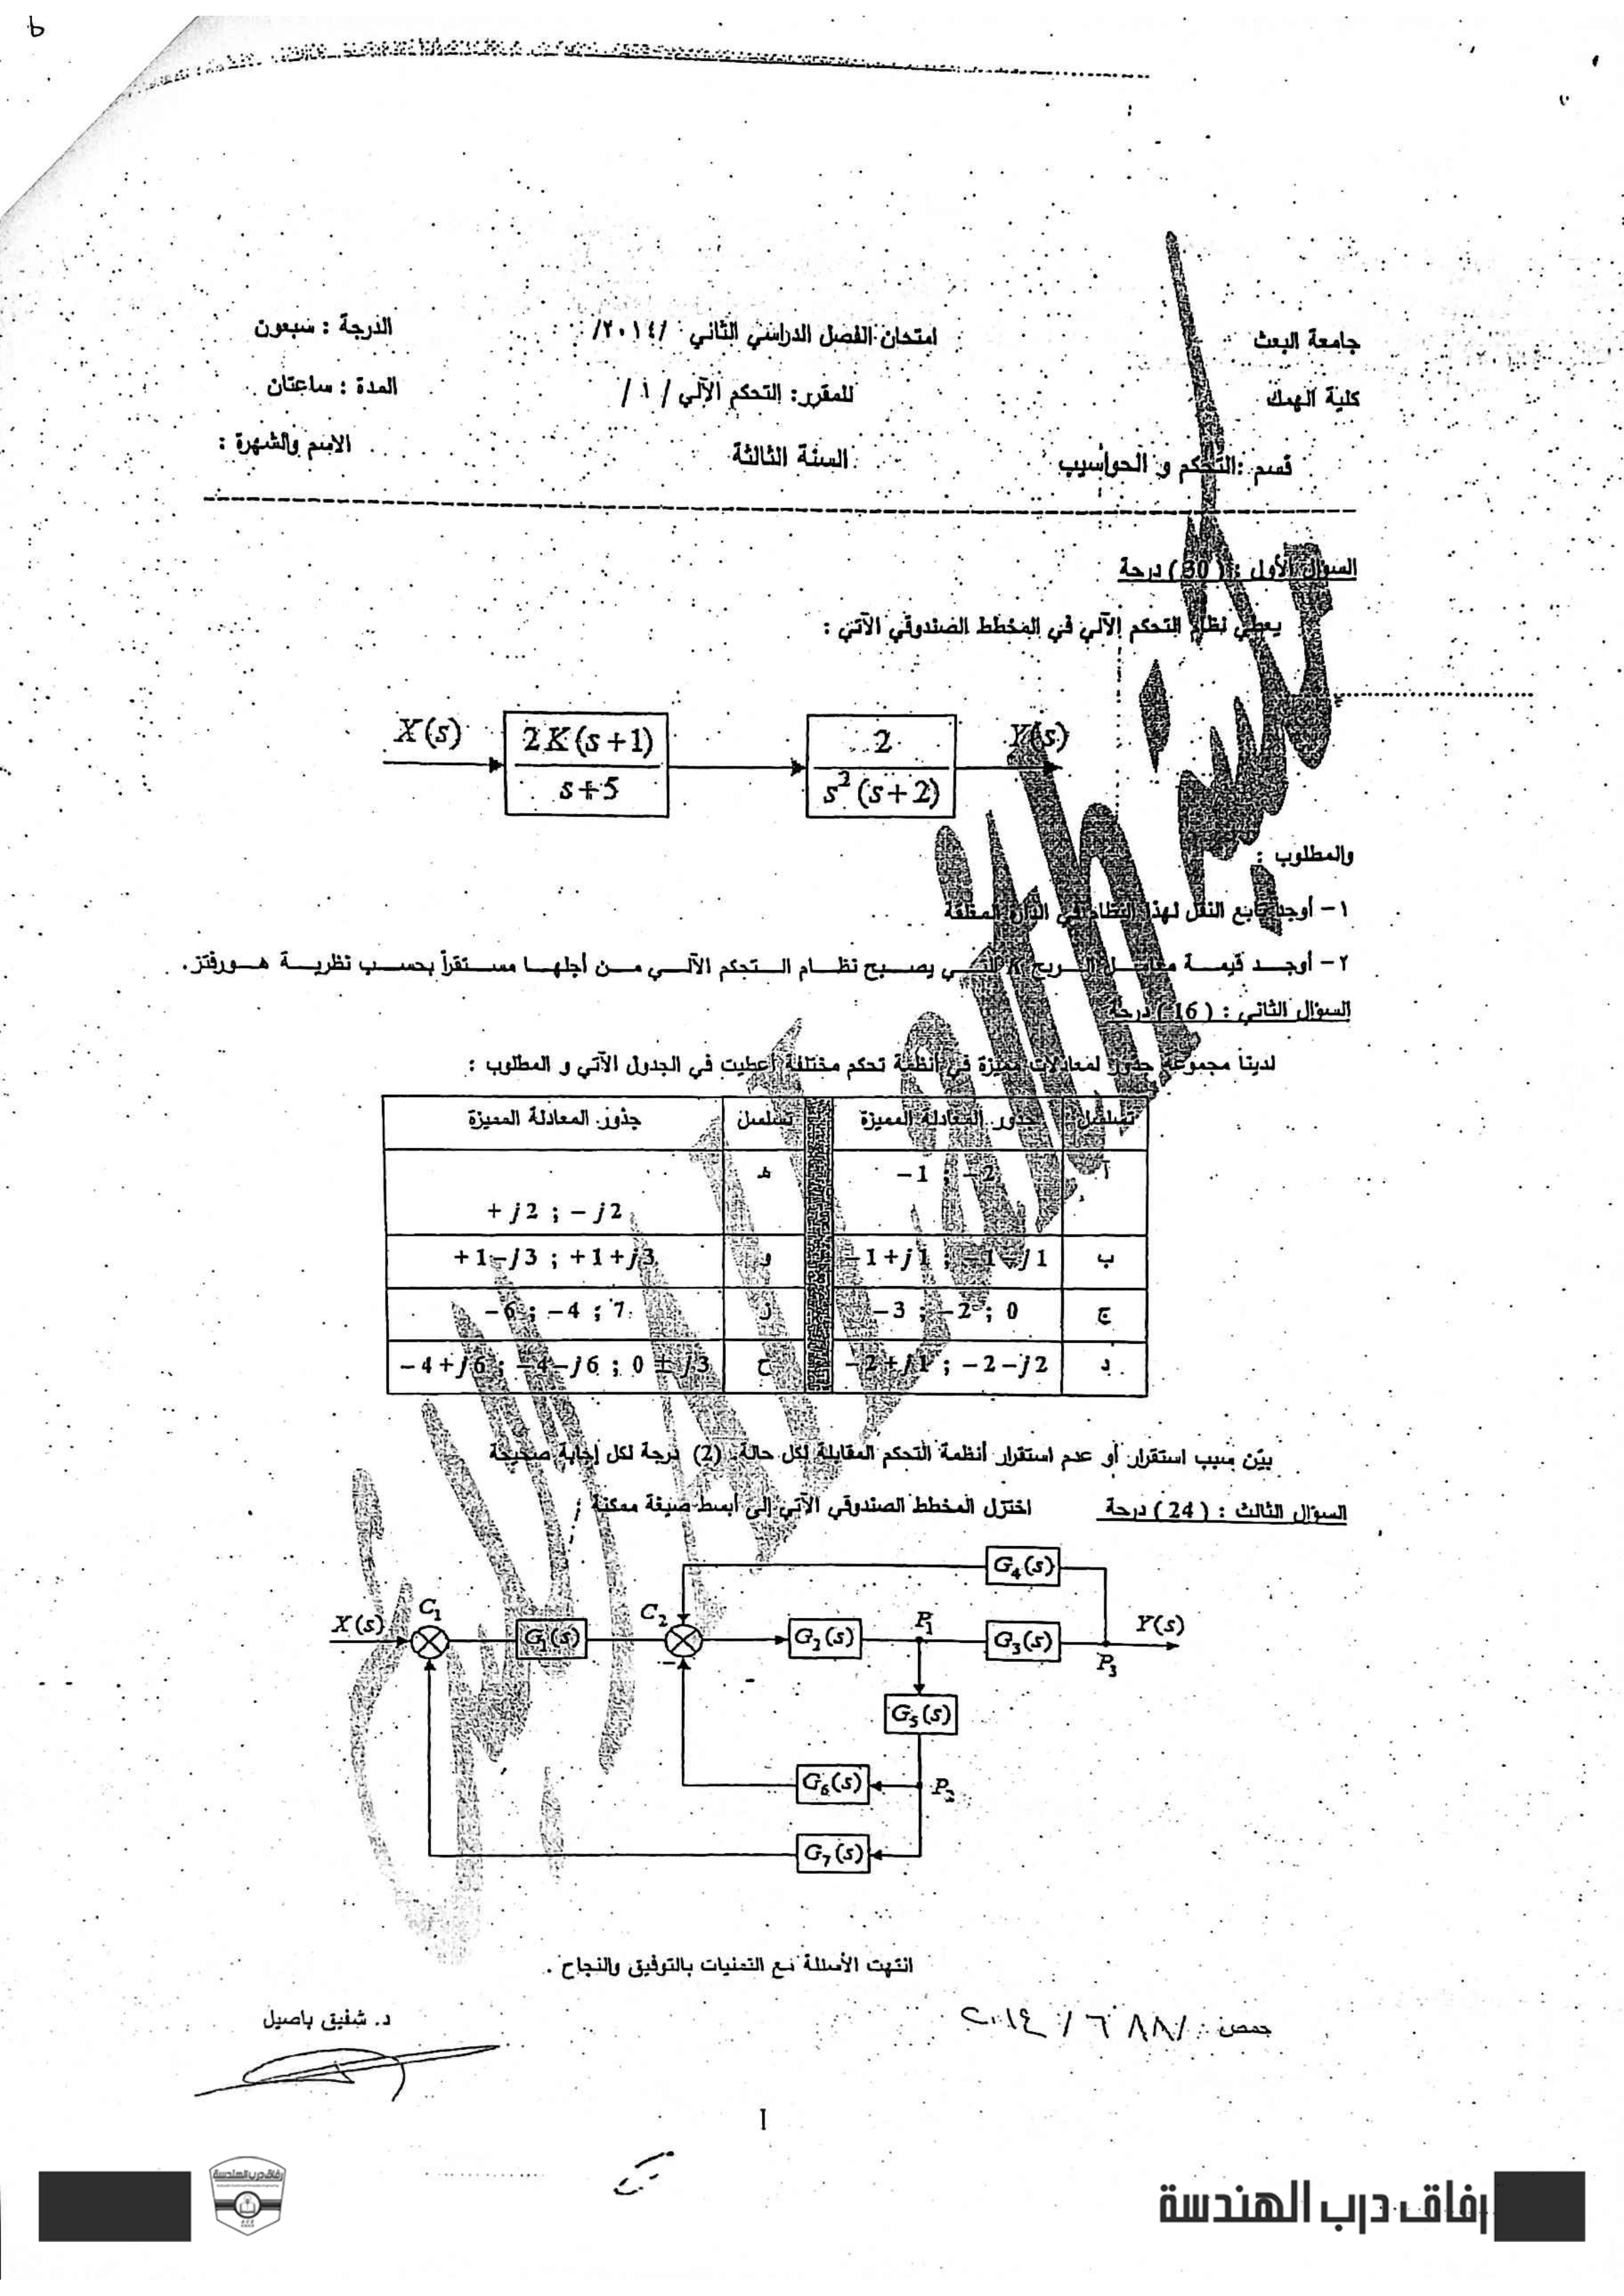 جامعة البعث
امتحان الفصل الدراسي الثاني /٢٠١٤/
الدرجة : سبعون
كلية الهمك
للمقرر: التحكم الآلي / ١ /
المدة : ساعتان
قسم : التحكم و الحواسيب
السنة الثالثة
الاسم والشهرة :
السؤال الأول : ( 30 ) درجة
يعطى نظام التحكم الآلي في المخطط الصندوقي الآتي :
X(s) 2K(s+1) / s+5 2 / s²(s+2) Y(s)
والمطلوب :
١ – أوجد تابع النقل لهذا النظام في الدارة المغلقة
٢ – أوجد قيمة معامل الربح K التي يصبح نظام التحكم الآلي من أجلها مستقراً بحسب نظرية هورفتز .
السؤال الثاني : ( 16 ) درجة
لدينا مجموعة جذور لمعادلات مميزة في أنظمة تحكم مختلفة أعطيت في الجدول الآتي و المطلوب :
تسلسل جذور المعادلة المميزة تسلسل جذور المعادلة المميزة
آ -1 ; -2 هـ +j2 ; -j2
ب -1+j1 ; -1-j1 و +1-j3 ; +1+j3
ج -3 ; -2 ; 0 ز -6 ; -4 ; 7
د -2+j1 ; -2-j2 ح -4+j6 ; -4-j6 ; 0 ± j3
بيّن سبب استقرار أو عدم استقرار أنظمة التحكم المقابلة لكل حالة. (2) درجة لكل إجابة صحيحة
السؤال الثالث : ( 24 ) درجة اختزل المخطط الصندوقي الآتي إلى أبسط صيغة ممكنة :
G4(s)
X(s) C1 G1(s) C2 G2(s) P1 G3(s) P3 Y(s)
-
G5(s)
G6(s) P2
G7(s)
انتهت الأسئلة مع التمنيات بالتوفيق والنجاح .
حمص :
د. شفيق باصيل
1
رفاق درب الهندسة